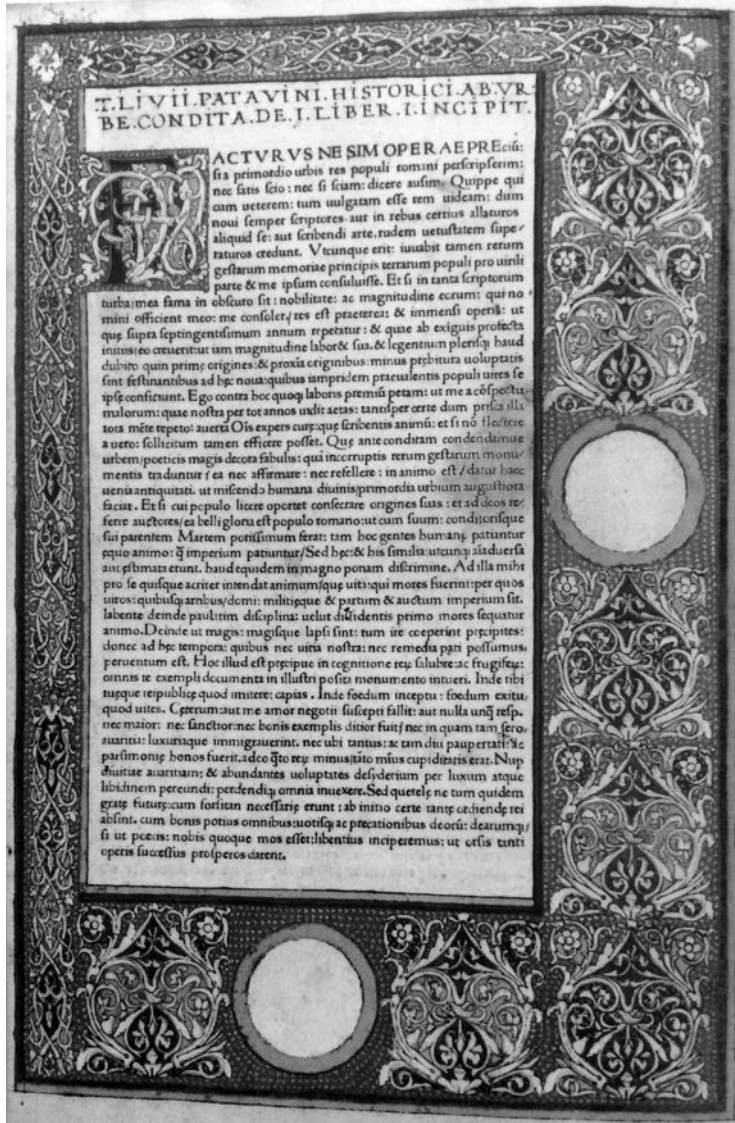 T. LIVII. PATAVINI. HISTORICI. AB. VR
BE. CONDITA. DE. I. LIBER. I. INCIPIT.
FACTVRVS NE SIM OPERAE PREciū:
si a primordio urbis res populi romani perscripserim:
nec satis scio: nec si sciam: dicere ausim. Quippe qui
cum ueterem: tum uulgatam esse rem uideam: dum
noui semper scriptores. aut in rebus certius allaturos
aliquid se: aut scribendi arte. rudem uetustatem supe/
raturos credunt. Vtcunque erit: iuuabit tamen rerum
gestarum memoriae principis terrarum populi pro uirili
parte & me ipsum consuluisse. Et si in tanta scriptorum
turba/mea fama in obscuro sit: nobilitate: ac magnitudine eorum: qui no
mini officient meo: me consoler/ res est praeterea: & immensi operis: ut
quę supra septingentisimum annum repetatur: & quae ab exiguis profecta
initiis/eo creuerit:ut iam magnitudine labor& sua. & legentium plerisq; haud
dubito quin primę origines: & proxīa originibus: minus prębitura uoluptatis
sint festinantibus ad hęc noua: quibus iampridem praeualentis populi uires se
ipsę conficiunt. Ego contra hoc quoq; laboris premiū petam: ut me a cōspectu
malorum: quae nostra per tot annos uidit aetas: tantisper certe dum prisca illa
tota mēte repeto: auertā Oīs expers curę: quę scribentis animū: et si nō flectere
a uero: sollicitum tamen efficere posset. Quę ante conditam condendamue
urbem/poeticis magis decora fabulis: quā incorruptis rerum gestarum monu/
mentis traduntur/ ea nec affirmare: nec refellere: in animo est/ datur haec
uenia antiquitati. ut miscendo humana diuinis/primordia urbium augustiora
faciat. Et si cui populo licere oportet consecrare origines suas: et ad deos re/
ferre auctores/ea belli gloria est populo romano: ut cum suum: conditorisque
sui parentem Martem potissimum ferat: tam hoc gentes humanę patiantur
ęquo animo: q̄ imperium patiuntur/Sed hęc: & his similia: utcunq; aīaduersa
aut ęstimata erunt. haud equidem in magno ponam discrimine. Ad illa mihi
pro se quisque acriter intendat animum/quę uita: qui mores fuerint: per quos
uiros: quibusq; artibus/domi: militięque & partum & auctum imperium sit.
labente deinde paulatim disciplina: uelut dissidentis primo mores sequatur
animo. Deinde ut magis: magisque lapsi sint: tum ire coeperint pręcipites:
donec ad hęc tempora: quibus nec uitia nostra: nec remedia pati possumus.
peruentum est. Hoc illud est pręcipue in cognitione reɟ salubre: ac frugiferę:
omnis te exempli documenta in illustri posita monumento intueri. Inde tibi
tuęque reipublicę quod imitere: capias. Inde foedum inceptu: foedum exitu,
quod uites. Cęterum: aut me amor negotii suscepti fallit: aut nulla unq̄ resp.
nec maior: nec sanctior: nec bonis exemplis ditior fuit/ nec in quam tam sero.
auaritia: luxuriaque immigrauerint. nec ubi tantus: ac tam diu paupertati: ac
parsimonię honos fuerit. adeo q̄to reɟ minus/tāto mīus cupiditatis erat. Nup
diuitiae auaritiam: & abundantes uoluptates desyderium per luxum atque
libidinem pereundi: perdendiq; omnia inuexere. Sed quetelę ne tum quidem
gratę futurę: cum forsitan necessarię erunt: ab initio certe tantę ordiendę rei
absint. cum bonis potius omnibus: uotisq; ac precationibus deorū: dearumq;/
si ut poetis: nobis quoque mos esset: libentius inciperemus: ut orsis tanti
operis successus prosperos darent.